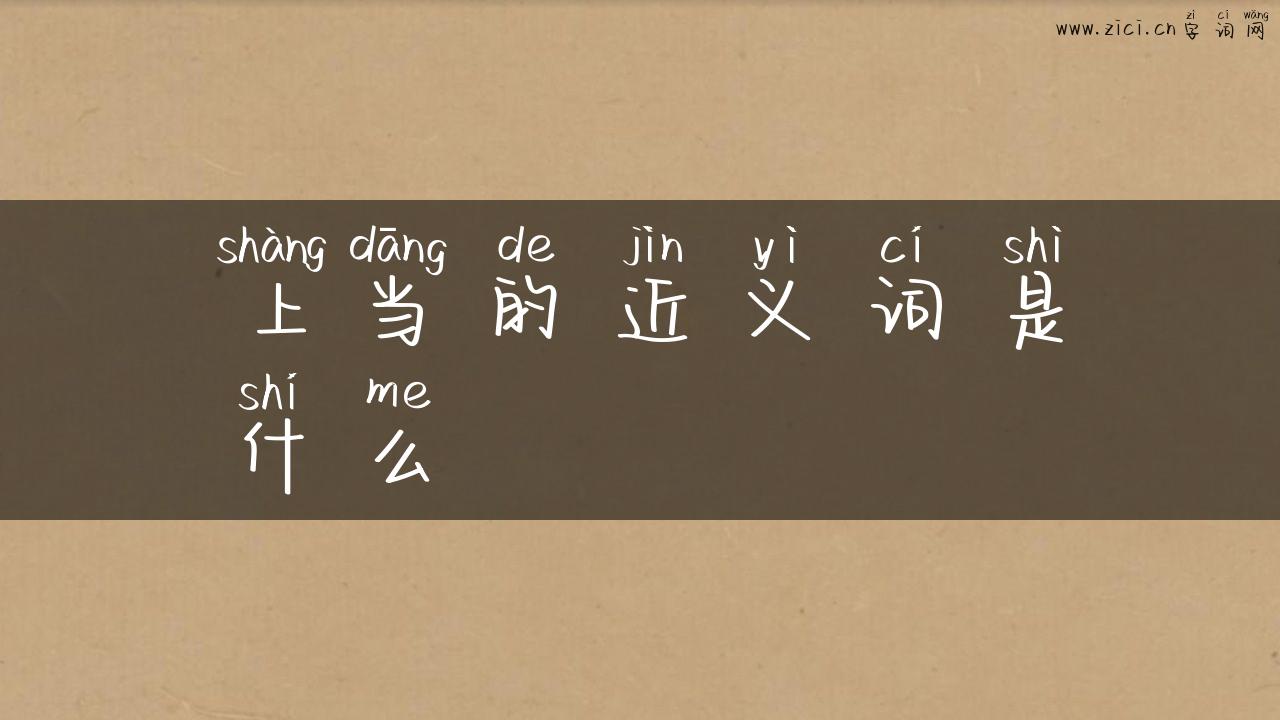 zì cí wǎng
www.zici.cn 字词网
shàng dāng de jìn yì cí shì
上当的近义词是
shí me
什么